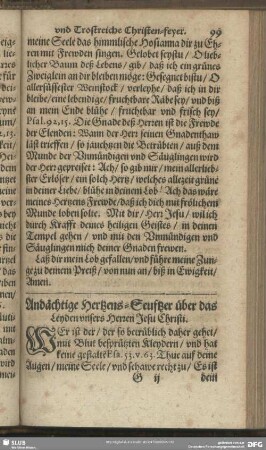 vnd Trostreiche Christen-feyer. 99
meine Seele das himmlische Hosianna dir zu Eh-
ren mit Frewden singen. Gelobet seystu / O lieb-
licher Baum deß Lebens / gib / daß ich ein grünes
Zweiglein an dir bleiben möge: Gesegnet bistu / O
allersüssester Weinstock / verleyhe / daß ich in dir
bleibe / eine lebendige / fruchtbare Räbe sey / vnd biß
an mein Ende blühe / fruchtbar vnd frisch sey /
Psal. 92, 15. Die Gnade deß Herren ist die Frewde
der Elenden: Wann der Herr seinen Gnadenthaw
läst trieffen / so jauchzen die Betrübten / auß dem
Munde der Vnmündigen vnd Säuglingen wird
der Herr gepreiset: Ach / so gib mir / mein allerlieb-
ster Erlöser / ein solch Hertz / welches allezeit grüne
in deiner Liebe / blühe in deinem Lob: Ach das wäre
meines Hertzens Frewde / daß ich dich mit frölichem
Munde loben solte. Mit dir / Herr Jesu / wil ich
durch Krafft deines heiligen Geistes / in deinen
Tempel gehen / vnd mit den Vnmündigen vnd
Säuglingen mich deiner Gnaden frewen.
Laß dir mein Lob gefallen / vnd führe meine Zun-
ge zu deinem Preiß / von nun an / biß in Ewigkeit /
Amen.
Andächtige Hertzens-Seufftzer über das
Leyden vnsers Herren Jesu Christi.
WEr ist der / der so betrüblich daher gehet /
mit Blut besprützten Kleydern / vnd hat
keine gestalt? Esa. 53. v. 63. Thue auf deine
Augen / meine Seele / vnd schawe recht zu / Es ist
G ij dein
SLUB